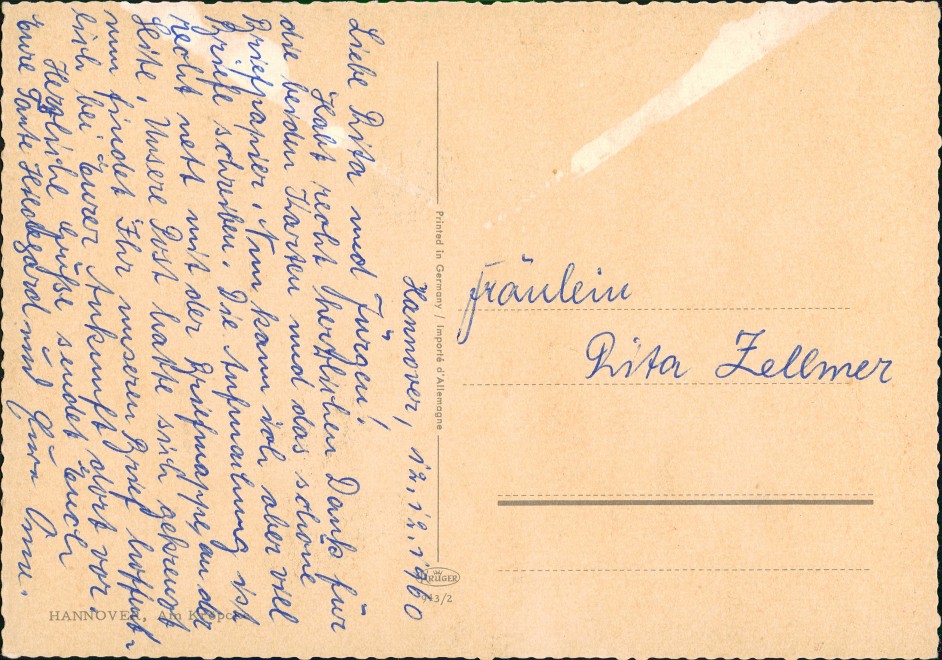 Hannover, 12.12.1960
Liebe Rita und Jürgen!
Habt recht herzlichen Dank für
die beiden Karten und das schöne
Briefpapier. Nun kann ich aber viel
Briefe schreiben. Die Aufmachung ist
recht nett mit der Briefmappe an der
Seite. Unsere Post hatte sich gekreuzt
nun findet Ihr unseren Brief hoffent-
lich bei Eurer Ankunft dort vor.
Herzliche Grüße sendet Euch
Eure Tante Hildegard und
Fräulein
Rita Zellmer
Printed in Germany / Importé d'Allemagne
KRÜGER
943/2
HANNOVER, Am Kröpcke